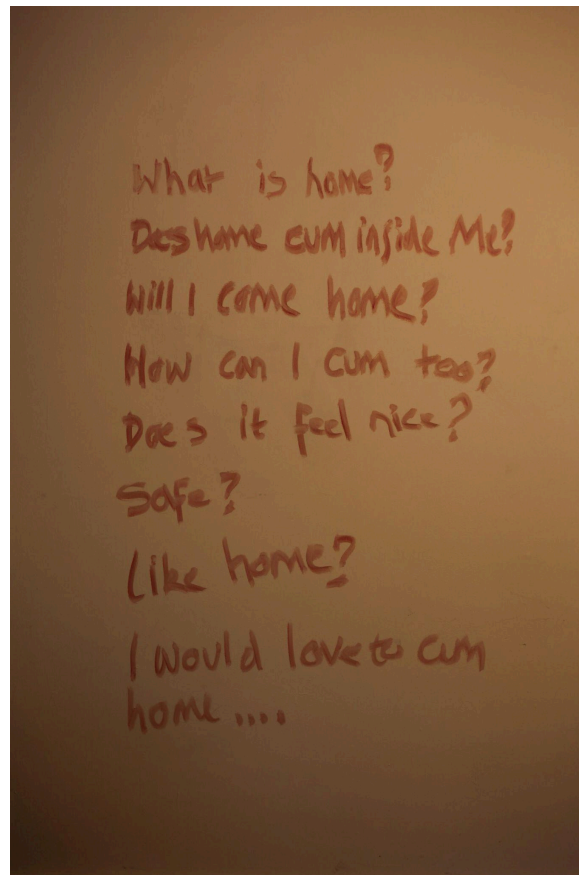 What is home?
Does home cum inside Me?
Will I come home?
How can I cum too?
Does it feel nice?
Safe?
Like home?
I would love to cum
home ....